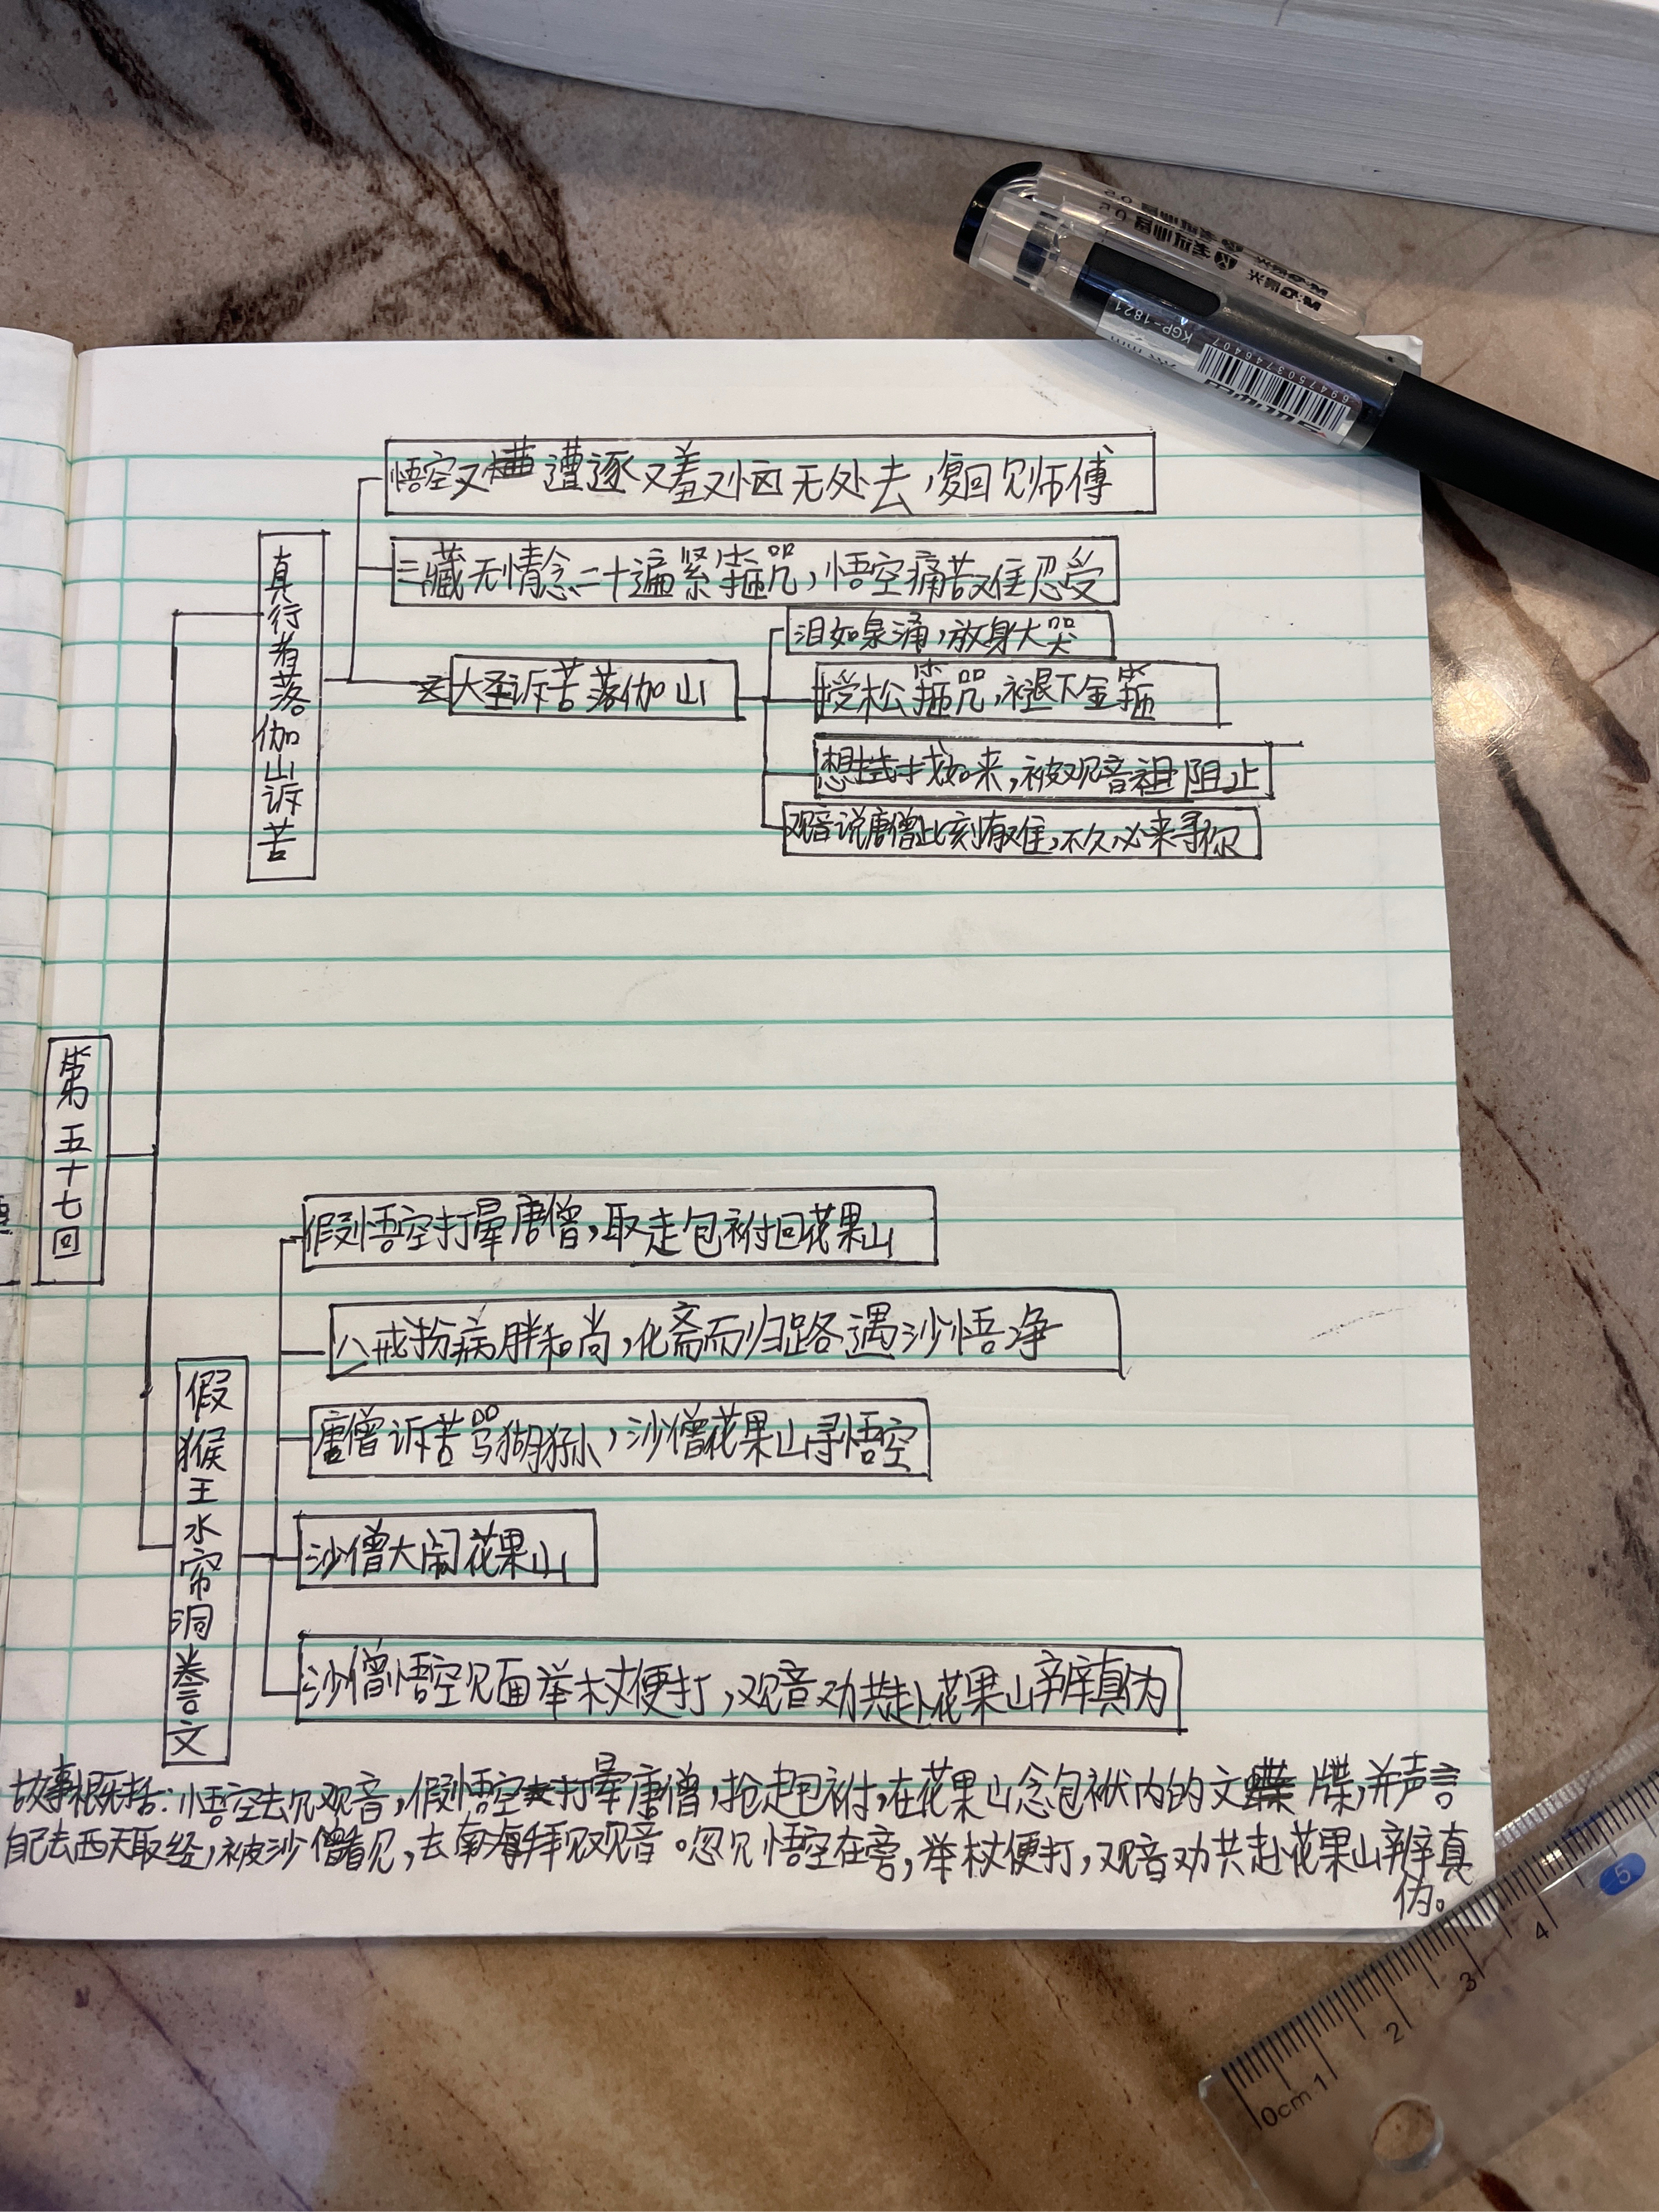 悟空又遭逐又羞又恼无处去,复回见师傅
三藏无情念二十遍紧箍咒,悟空痛苦难忍受
真行者落伽山诉苦
大圣诉苦落伽山
泪如泉涌,放身大哭
授松箍咒,褪下金箍
想找如来,被观音阻止
观音说唐僧此刻有难,不久必来寻你
第五十七回
假猴王水帘洞誊文
假悟空打晕唐僧,取走包袝回花果山
八戒扮病胖和尚,化斋而归路遇沙悟净
唐僧诉苦骂猢狲,沙僧花果山寻悟空
沙僧大闹花果山
沙僧悟空见面举杖便打,观音劝共赴花果山辨真伪
故事概括:悟空去见观音,假悟空打晕唐僧,抢走包袝,在花果山念包袱内的文牒,并声言
自己去西天取经,被沙僧看见,去南海拜见观音。忽见悟空在旁,举杖便打,观音劝共赴花果山辨真
伪。
M&G晨光
考试必备
0.5
KGP-1821
6947503746407
0cm 1 2 3 4 5